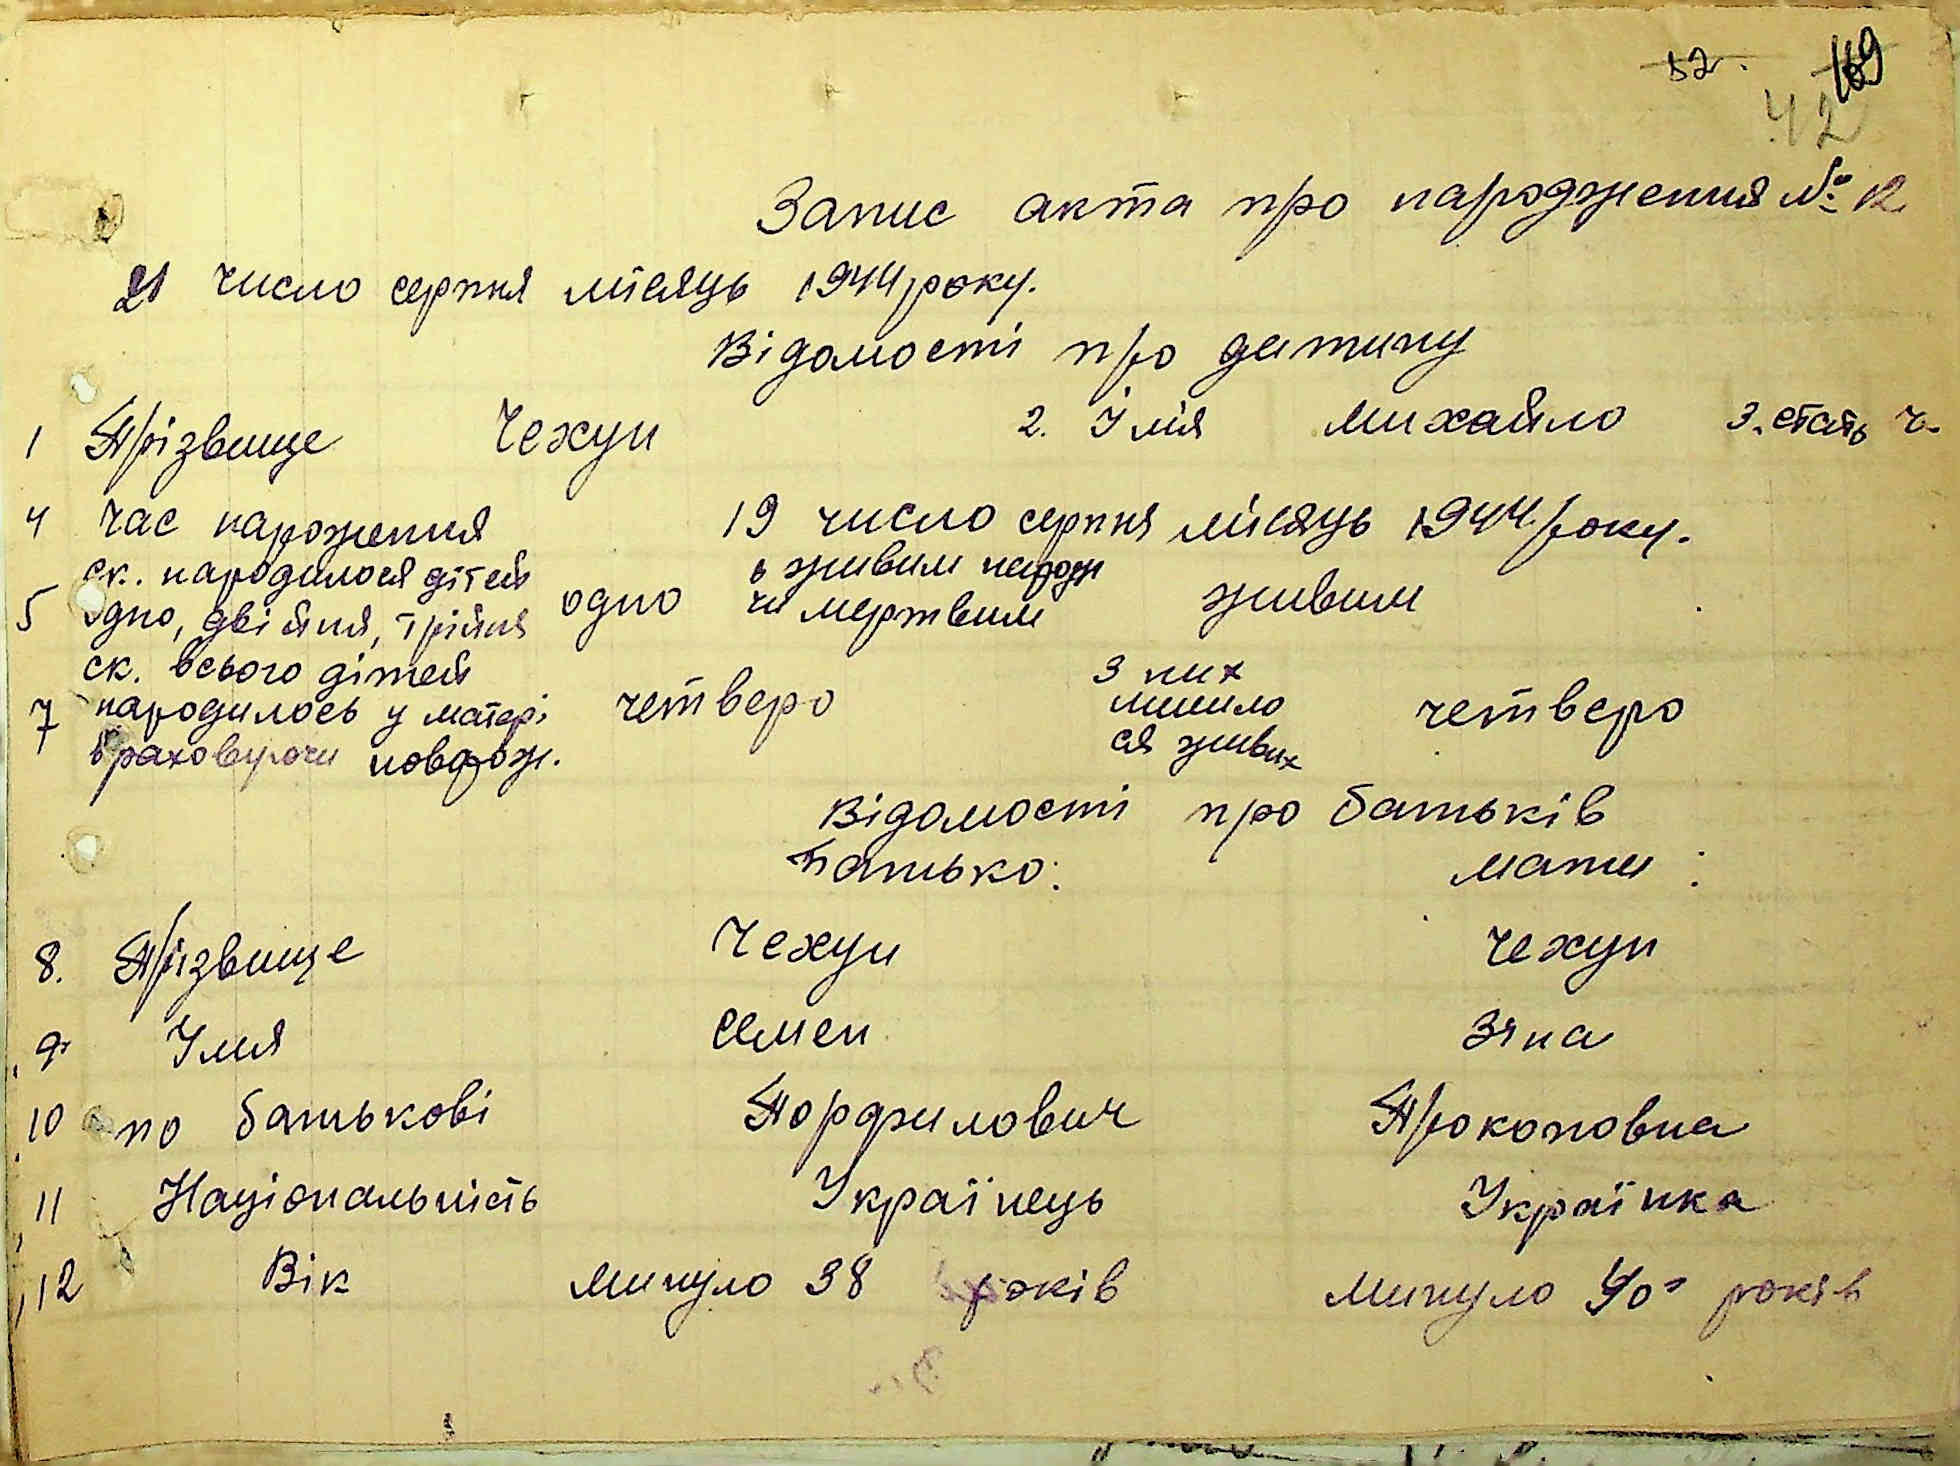 52. 169
42
Запис акта про народження № 12
21 число серпня місяць 1944 року.
Відомості про детину
1 Прізвище Чехун 2. Імія Михайло 3. стать ч.
4 Час нарожения 19 число серпня місяць 1944 року.
5 ск. народилося дітей одно, двійня, трійня одно 6 живим народж чи мертвим живим
7 ск. всього дітей народилось у матері враховуючи новорож. четверо З них лишило ся живих четверо
Відомості про батьків
Батько: мати :
8. Прізвище Чехун Чехун
9. Імия Семен Зіна
10 по батькові Порфилович Прокоповна
11 Національність Українець Українка
12 Вік минуло 38 років минуло 40 років